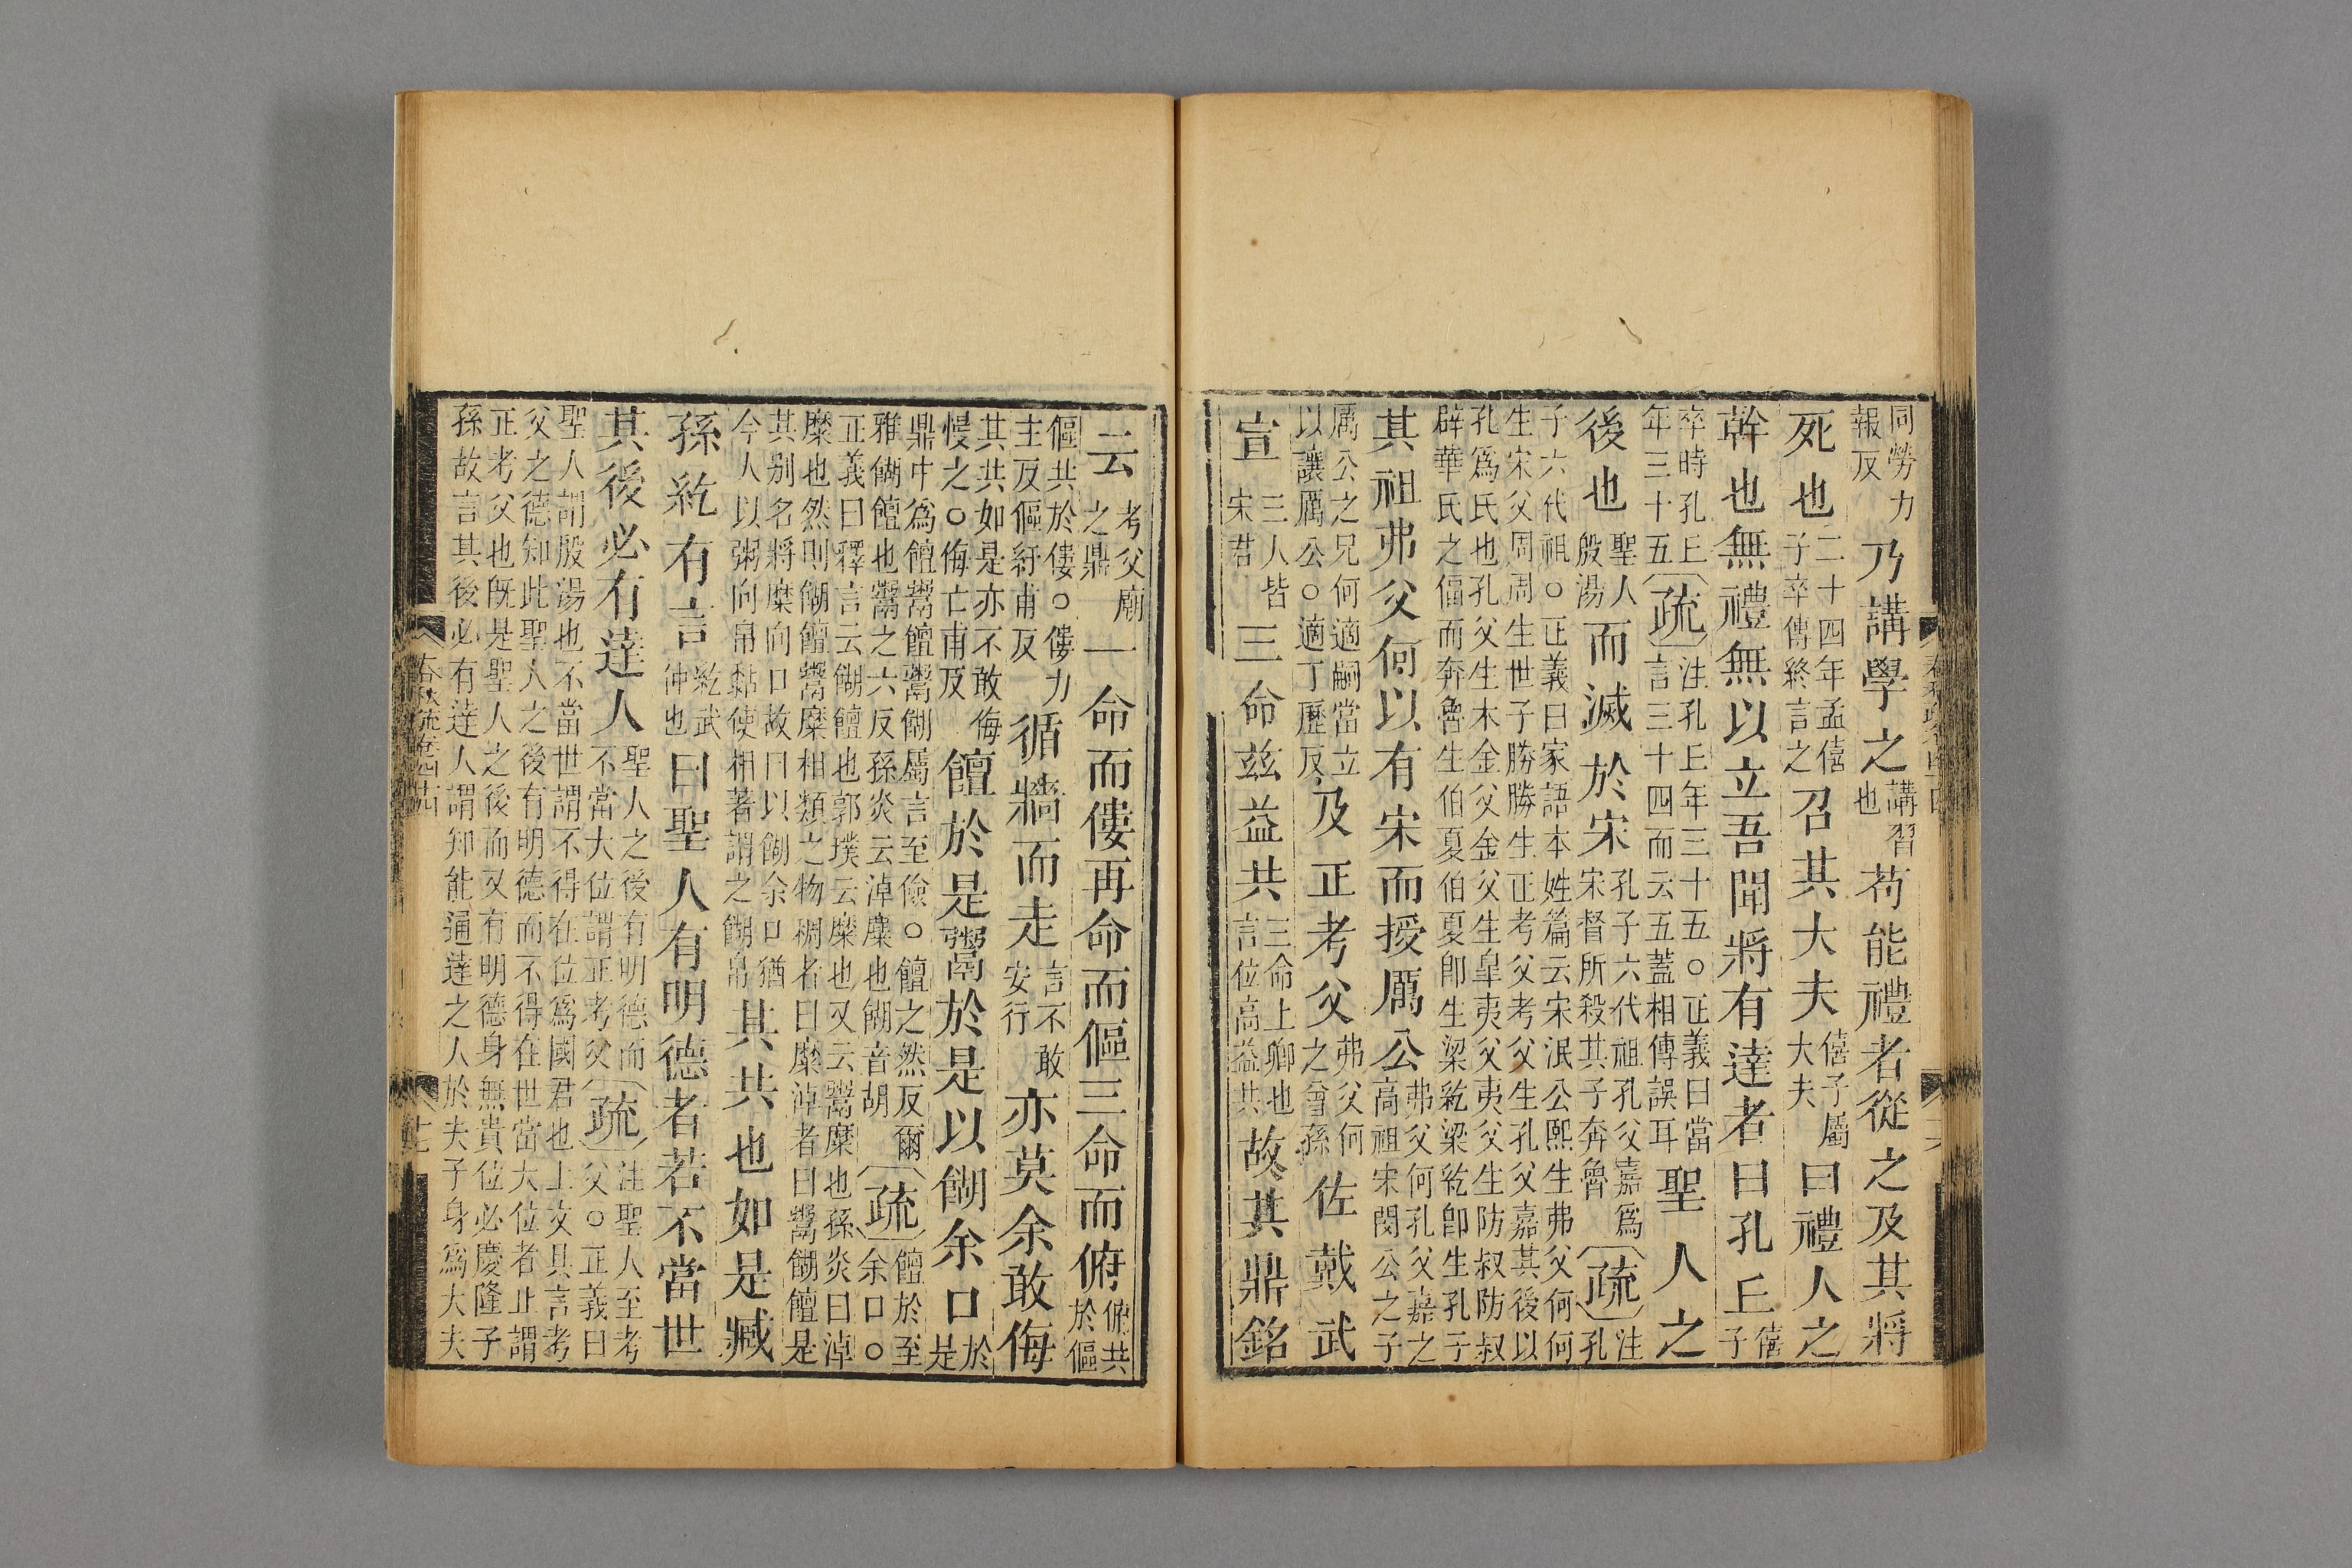 同勞力報反乃講學之講習也苟能禮者從之及其將
死也二十四年孟僖子卒傳終言之召其大夫僖子屬大夫曰禮人之
幹也無禮無以立吾聞將有達者曰孔丘僖子
卒時孔丘年三十五疏注孔丘年三十五○正義曰當言三十四而云五蓋相傳誤耳聖人之
後也聖人殷湯而滅於宋孔子六代祖孔父嘉爲宋督所殺其子奔魯疏注孔
子六代祖○正義曰家語本姓篇云宋泯公熙生弗父何何
生宋父周周生世子勝勝生正考父考父生孔父嘉其後以
孔爲氏也孔父生木金父金父生皐夷父夷父生防叔防叔
辟華氏之偪而奔魯生伯夏伯夏卽生梁紇梁紇卽生孔子
其祖弗父何以有宋而授厲公弗父何孔父嘉之高祖宋閔公之子
厲公之兄何適嗣當立以讓厲公○適丁歷反及正考父弗父何之曾孫佐戴武
宣三人皆宋君三命兹益共三命上卿也言位高益共故其鼎銘
云考父廟之鼎一命而僂再命而傴三命而俯俯共於傴
傴共於僂○僂力主反傴紆甫反循牆而走言不敢安行亦莫余敢侮
其共如是亦不敢侮慢之○侮亡甫反饘於是鬻於是以餬余口於是
鼎中爲饘鬻饘鬻餬屬言至儉○饘之然反爾雅餬饘也鬻之六反孫炎云淖麋也餬音胡疏饘於至余口○
正義曰釋言云餬饘也郭璞云糜也又云鬻糜也孫炎曰淖
糜也然則餬饘鬻糜相類之物稠者曰糜淖者曰鬻餬饘是
其别名將糜向口故曰以餬余口猶今人以粥向帛黏使相著謂之餬帛其共也如是臧
孫紇有言紇武仲也曰聖人有明德者若不當世
其後必有達人聖人之後有明德而不當大位謂正考父疏注聖人至考父○正義曰
聖人謂殷湯也不當世謂不得在位爲國君也上文具言考
父之德知此聖人之後有明德而不得在世當大位者止謂
正考父也既是聖人之後而又有明德身無貴位必慶隆子
孫故言其後必有達人謂知能通達之人於夫子身爲大夫